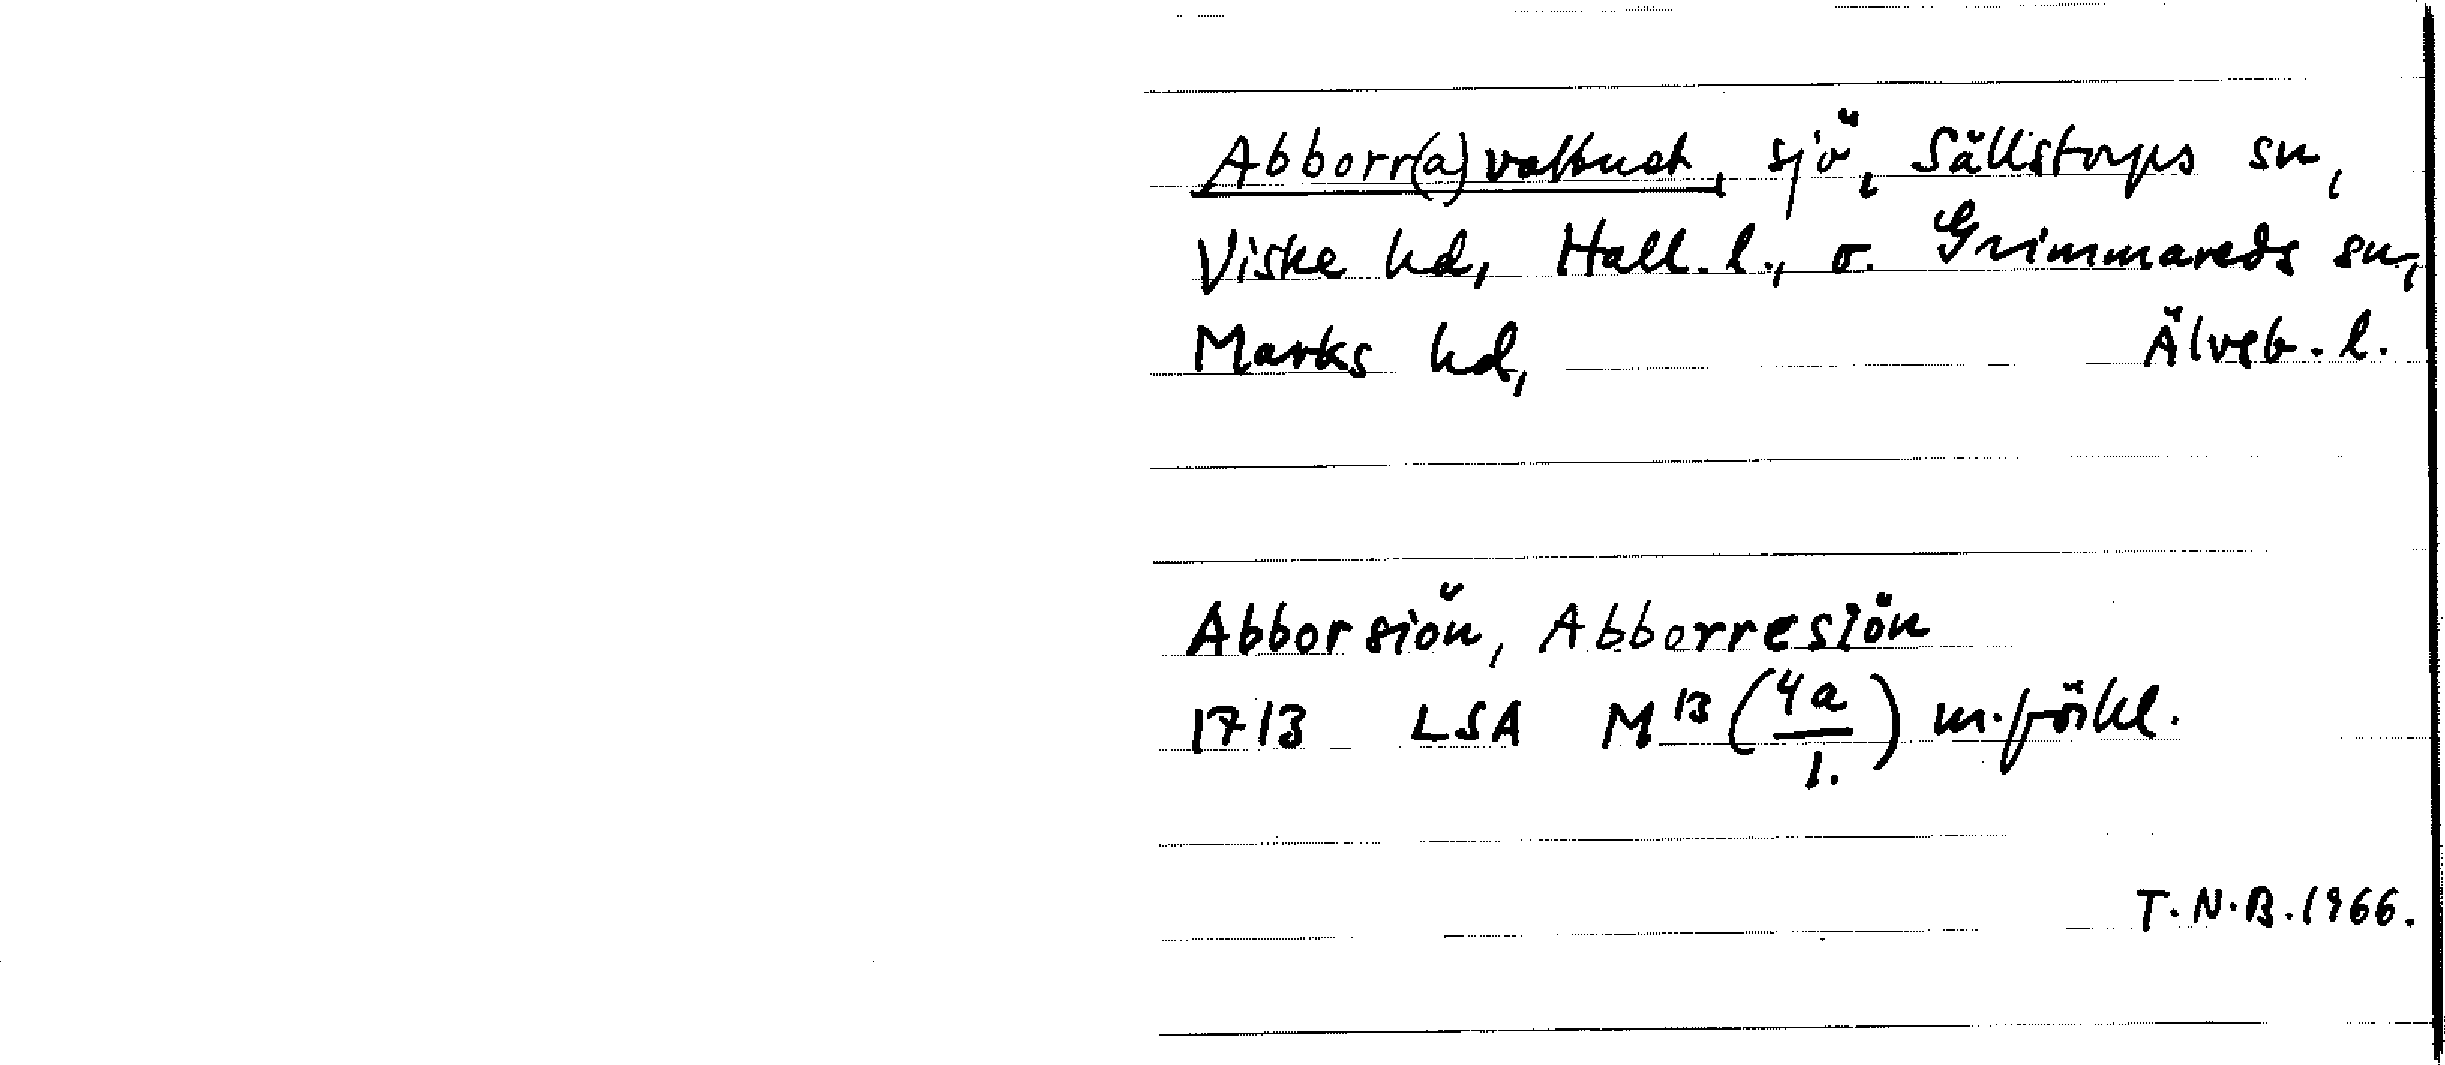 Abborr(a)vattnet, sjö, Sällstorps sn,
Viske hd, Hall. l., o. Grimmareds sn,
Marks hd, Älvsb. l.
Abborsiön, Abborresiön
1713 LSA M13 (4a/1.) m. förkl.
T.N.B. 1966.